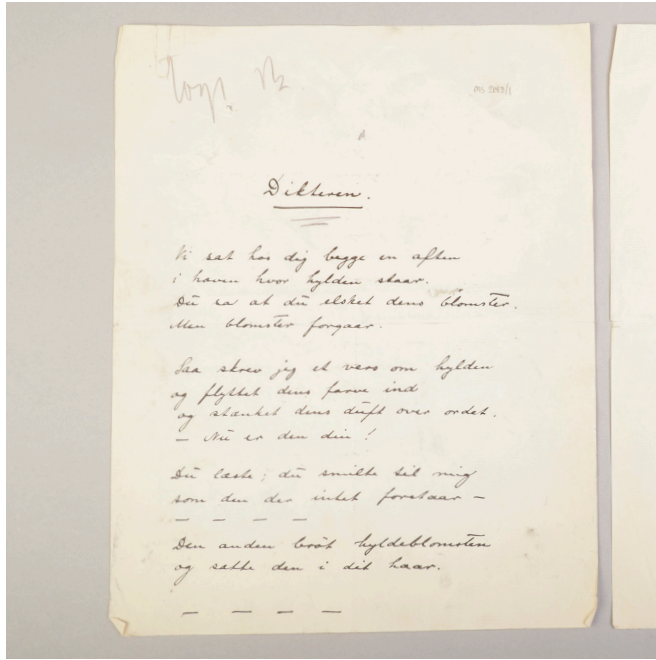 MS 5143/1
Dikteren.
Vi sat hos dig begge en aften
i haven hvor hylden staar.
Du sa at du elsket dens blomster.
Men blomster forgaar.
Saa skrev jeg et vers om hylden
og flyttet dens farve ind
og stænket dens duft over ordet.
— Nu er den din!
Du læste; du smilte til mig
som den der intet forstaar —
— — — —
Den anden brøt hyldeblomsten
og satte den i dit haar.
— — — —